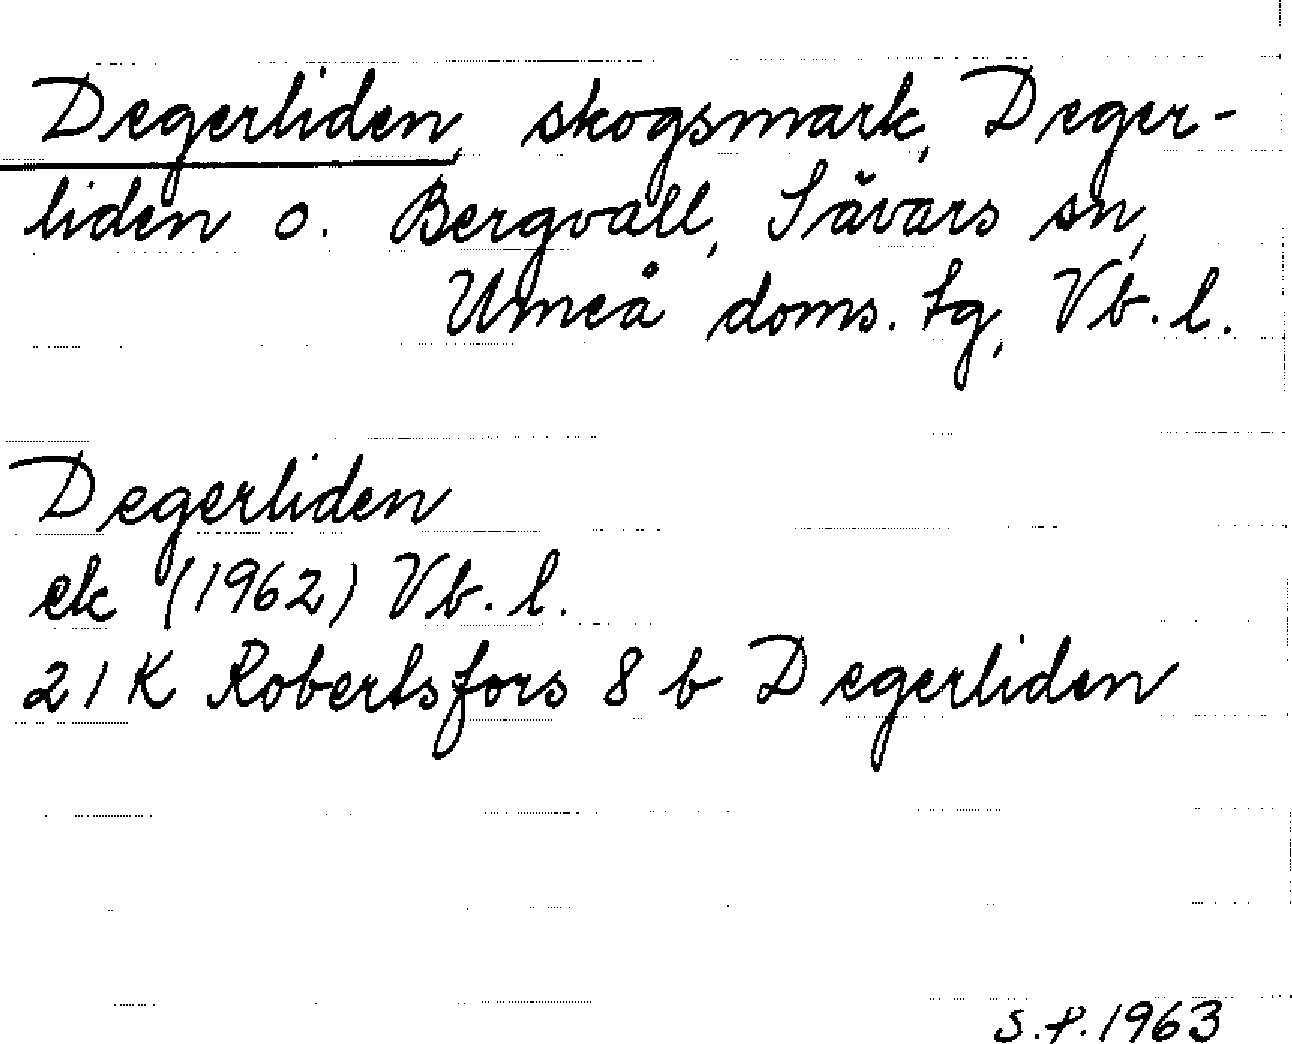 Degerliden, skogsmark, Deger-
liden o. Bergvall, Sävars sn,
Umeå doms. tg, Vb. l.
Degerliden
ek (1962) Vb. l.
21 K Robertsfors 8 b Degerliden
S.P. 1963